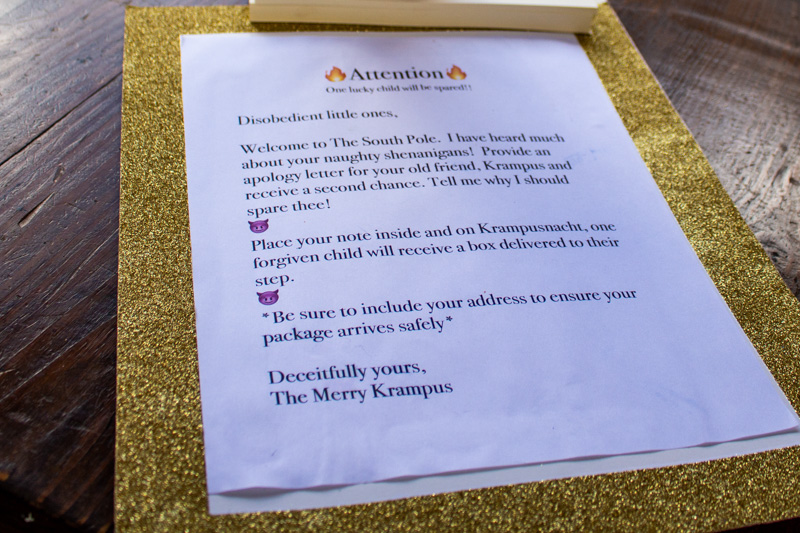 🔥Attention🔥
One lucky child will be spared!!
Disobedient little ones,
Welcome to The South Pole. I have heard much
about your naughty shenanigans! Provide an
apology letter for your old friend, Krampus and
receive a second chance. Tell me why I should
spare thee!
😈
Place your note inside and on Krampusnacht, one
forgiven child will receive a box delivered to their
step.
😈
*Be sure to include your address to ensure your
package arrives safely*
Deceitfully yours,
The Merry Krampus